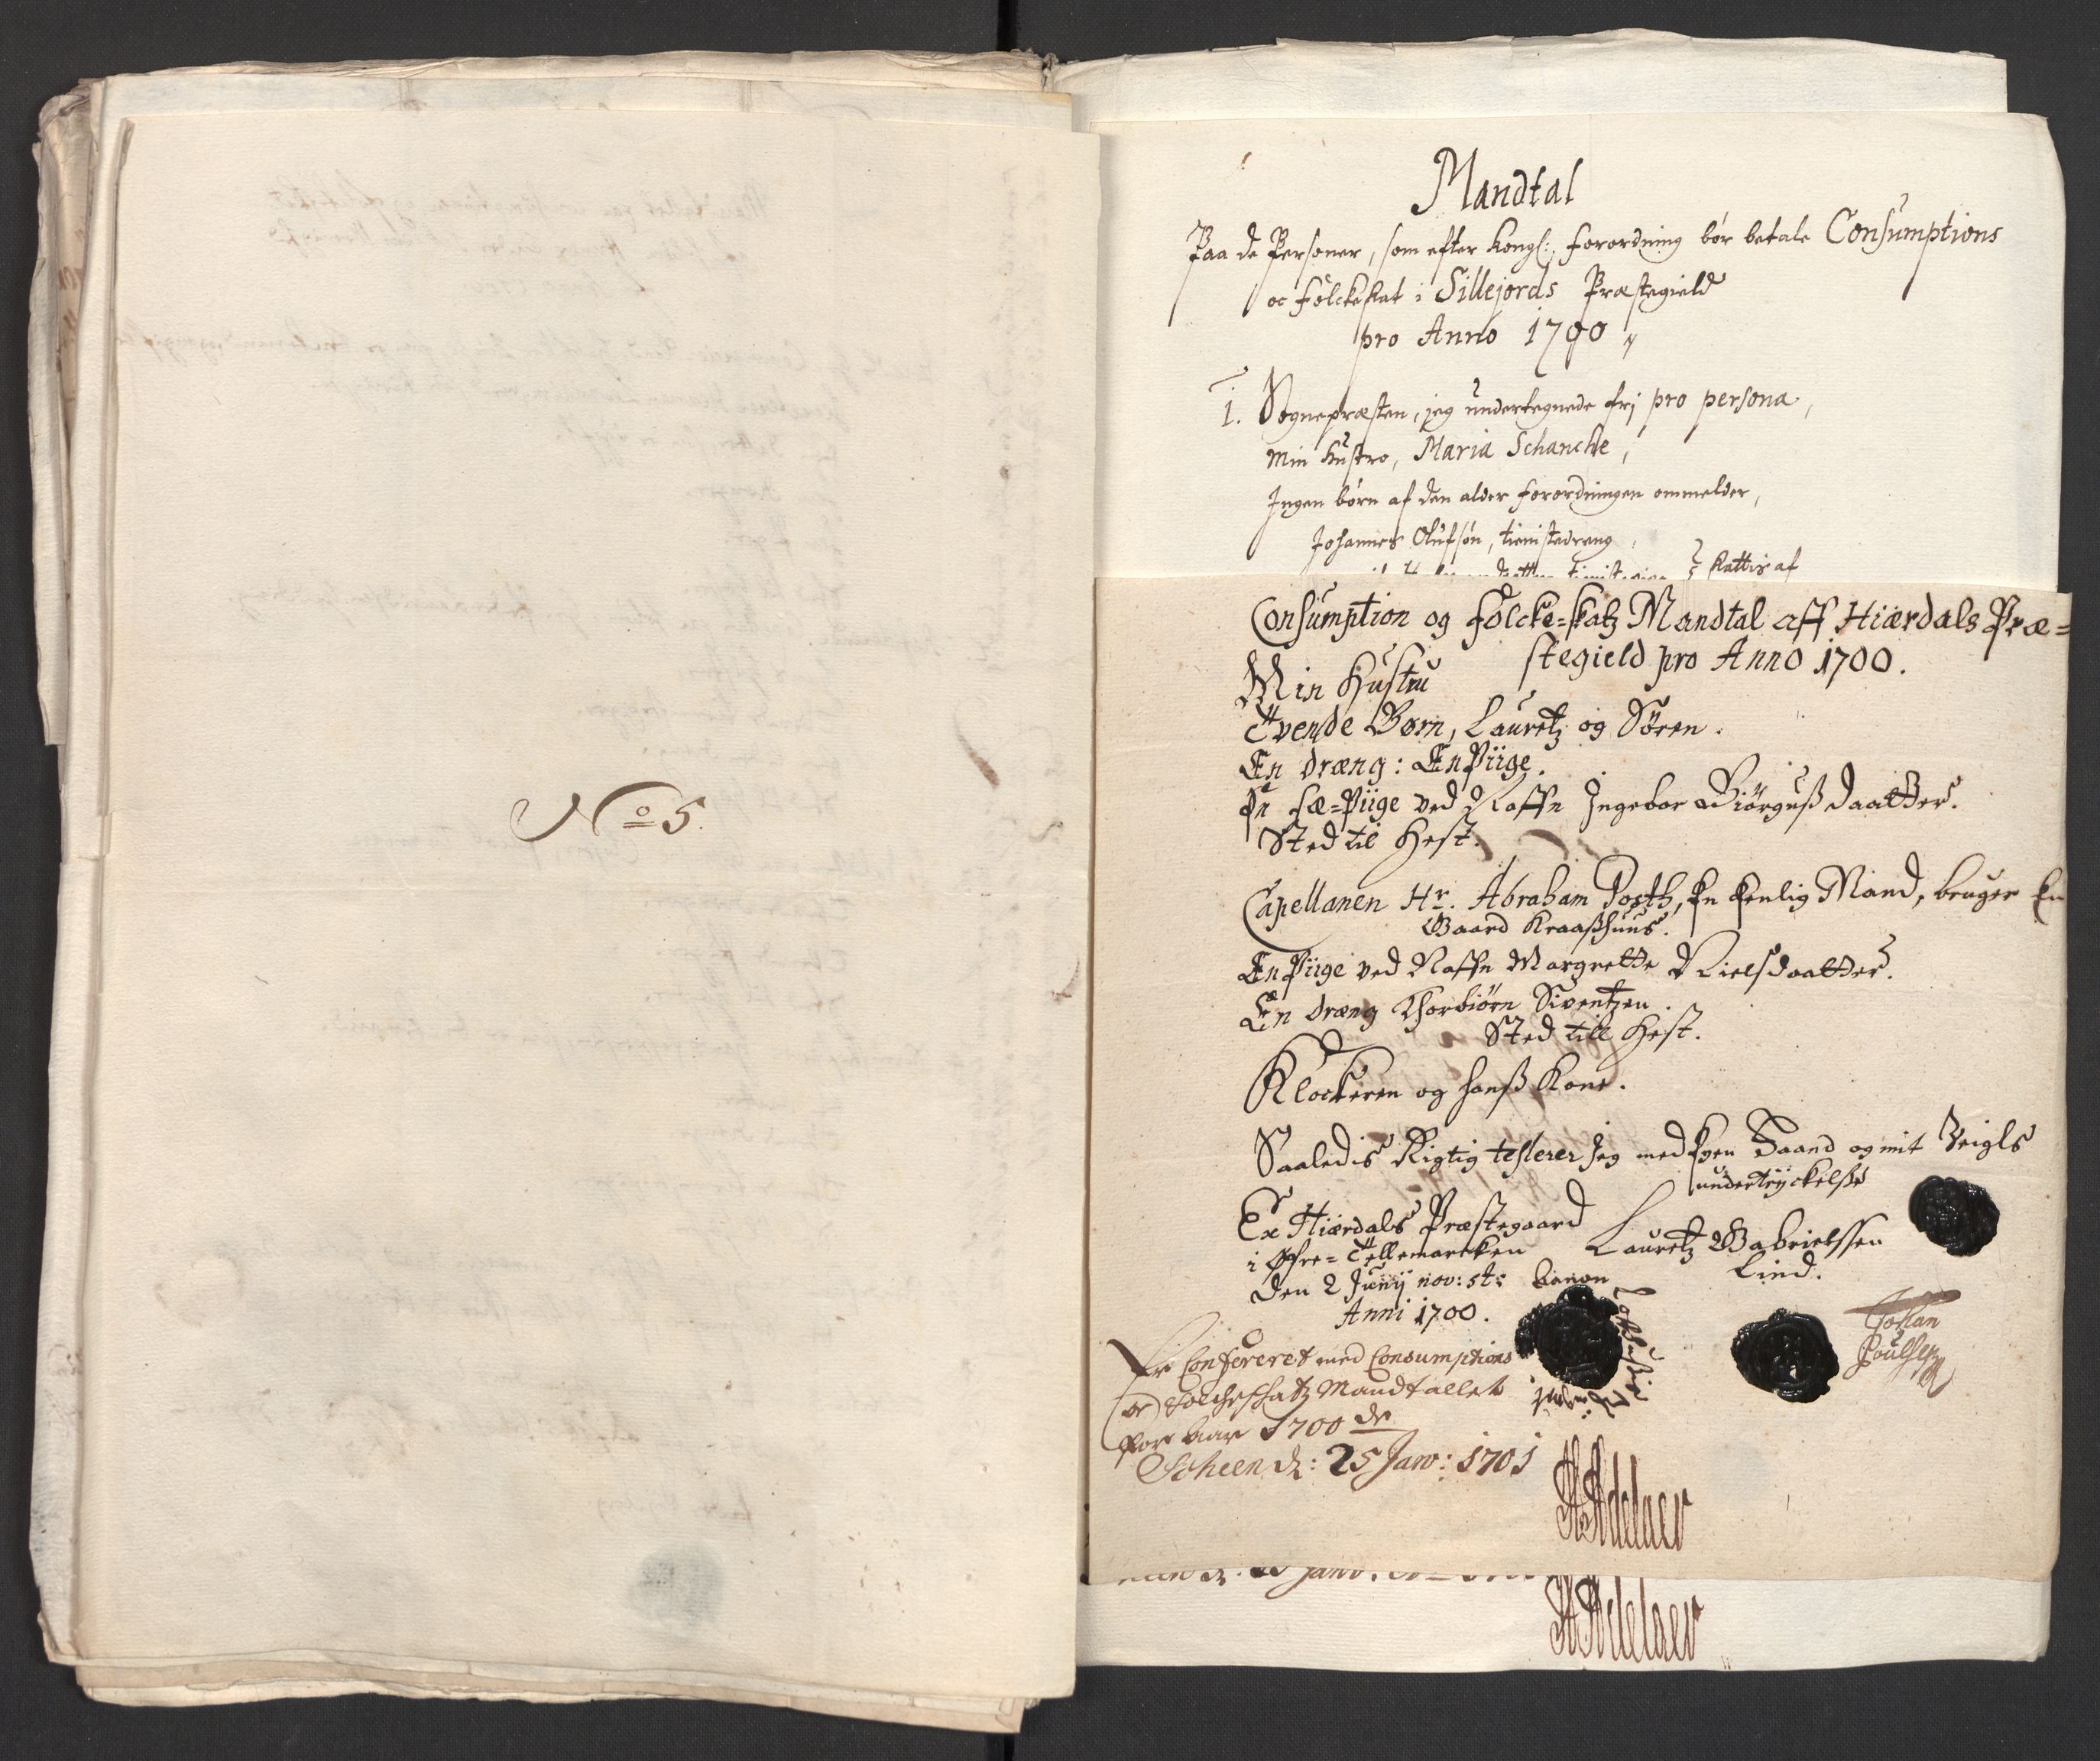 No 5.
Mandtal
Paa de Personer, som efter Kongl: forordning bør betale Consumptions
oc folckeskat i Sillejords Præstegield
pro Anno 1700
1. Sognepræsten, jeg undertegnede fri pro persona,
Min Hustro, Maria Schanche,
Ingen børn af den alder forordningen ommelder,
Johannes Olufsøn, tienistedreng,
Consumption og folcke=skatz Mandtal aff Hiærdals Præ=
stegield pro Anno 1700.
Min Hustru
Tvende Børn, Lauretz og Sören.
En dræng: En Piige.
En Fæ=Piige ved Naffn Ingebor Biörguß daatter.
Sted til Hest.
Capellanen Hr. Abraham Posth, En Eenlig Mand, bruger En
Gaard Kraaßhuus.
En Piige ved Naffn Margrette Nielsdaatter.
En dræng Thorbiörn Siventzen.
Sted till Hest.
Klockeren og hanß Kone.
Saaledis Rigtig testerer Jeg med Egen Haand og mit Zeigls
undertryckelße
Ex Hiærdals Præstegaard
i Øfre=Tellemarcken
Den 2 Junij nov: st:
Anni 1700.
Lauretz Gabrielssen
Lind.
Johan
Poulsen
Er Confereret med Consumptions
oc Folcheschatz Mandtallet
for Aar 1700 de
Scheen d: 25 Janv: 1701
HAdelaer
HAdelaer